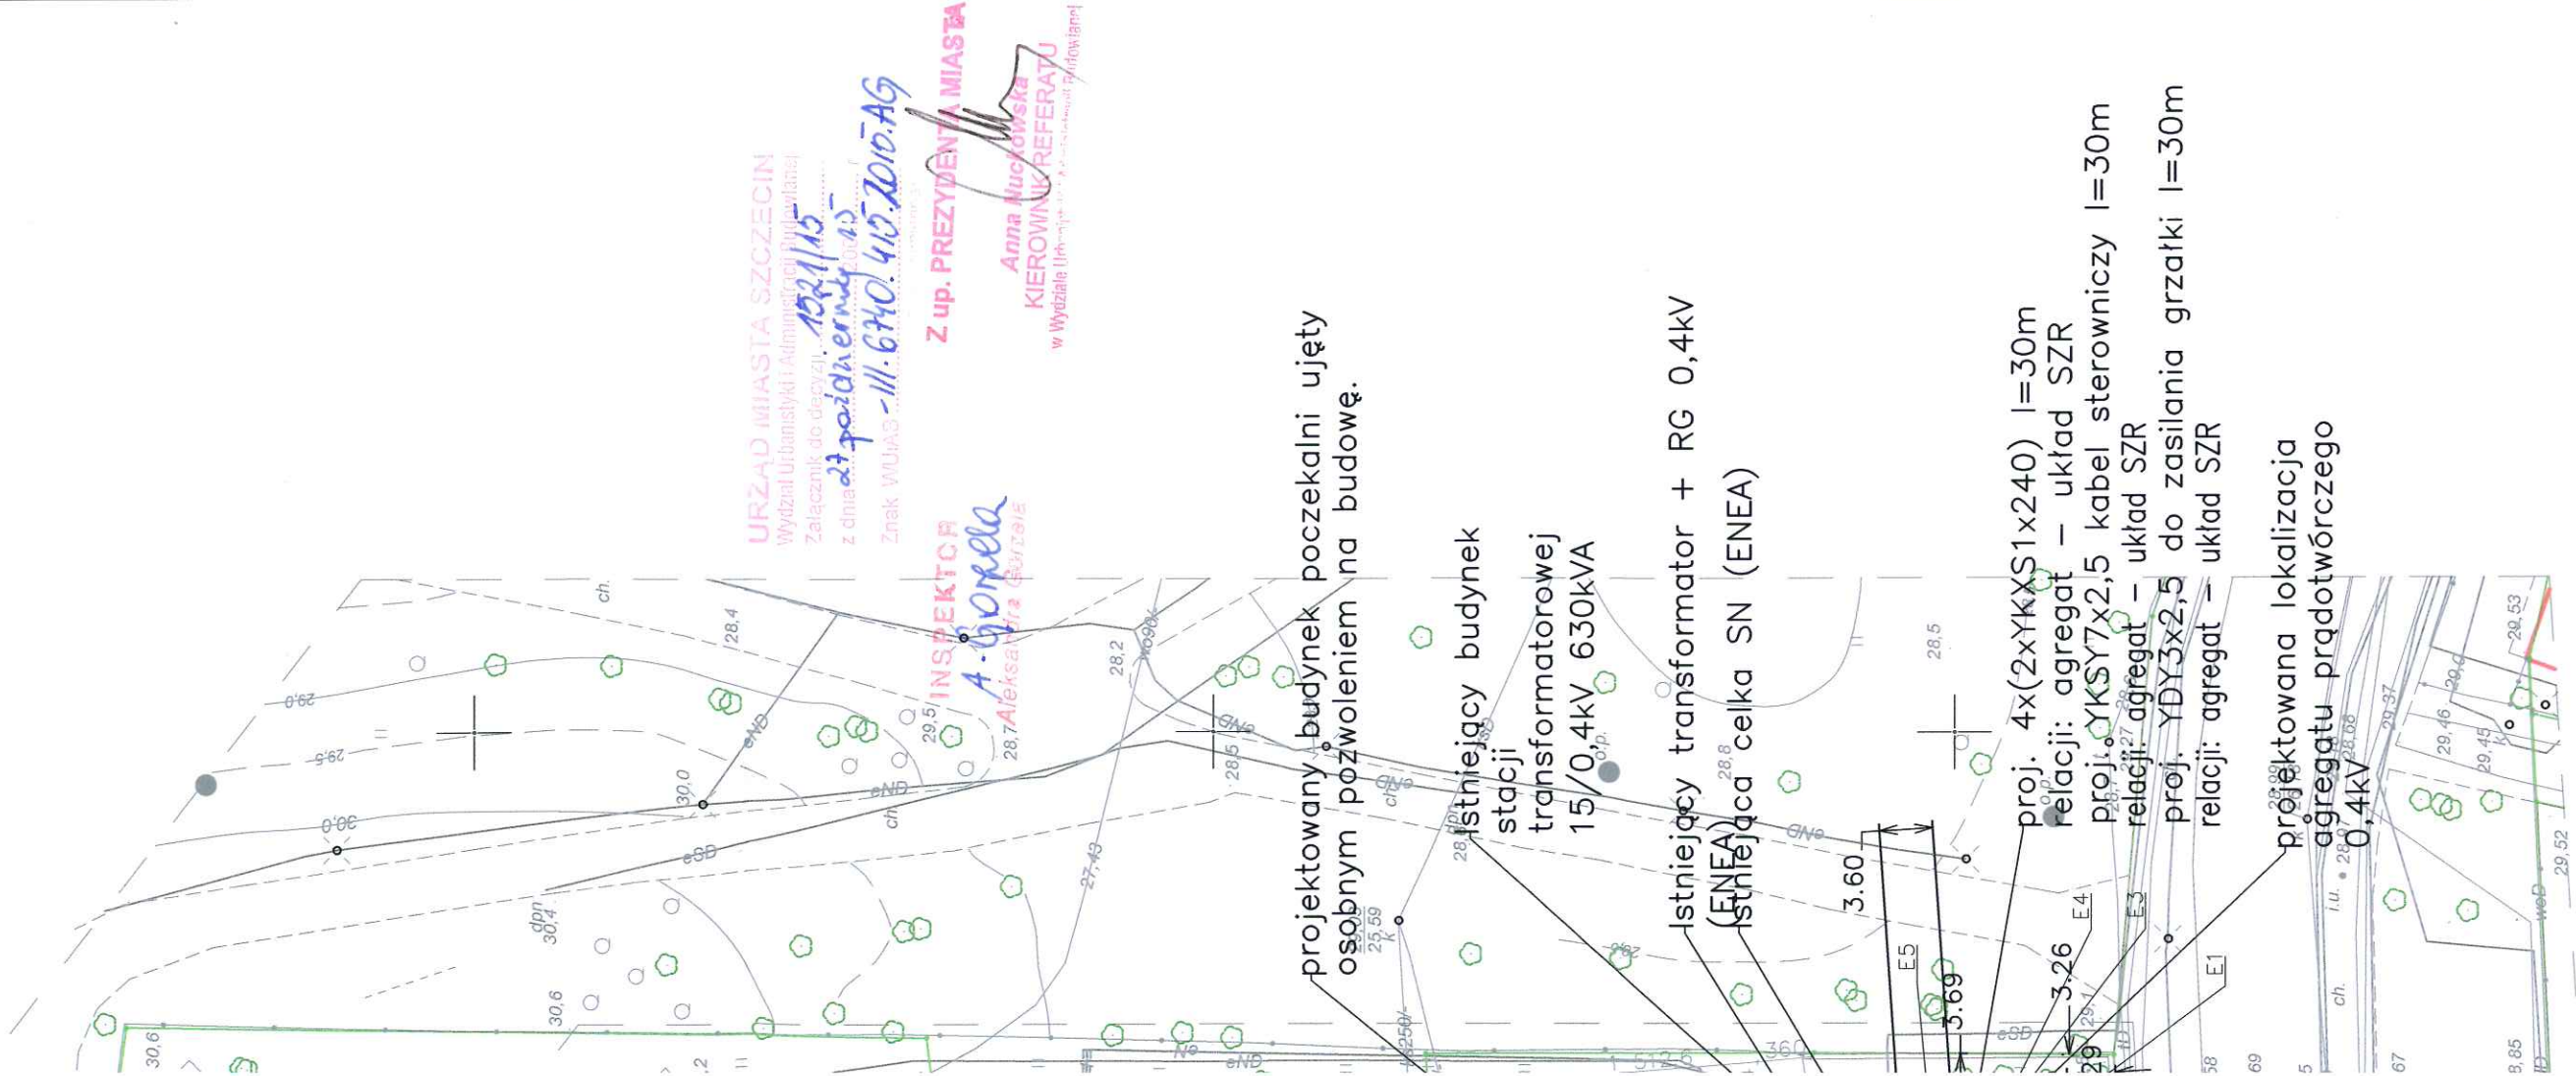 URZĄD MIASTA SZCZECIN
Wydział Urbanistyki i Administracji Budowlanej
Załącznik do decyzji 1521/15
z dnia 27 października 2015
Znak WUiAB-III.6740.415.2015.AG
Z up. PREZYDENTA MIASTA
Anna Nuckowska
KIEROWNIK REFERATU
w Wydziale
INSPEKTOR
A. Gorzela
Aleksandra Gorzela
projektowany budynek poczekalni ujęty
osobnym pozwoleniem na budowę.
istniejący budynek
stacji
transformatorowej
15/0,4kV 630kVA
Istniejący transformator + RG 0,4kV
(ENEA)
Istniejąca celka SN (ENEA)
proj. 4x(2xYKXS1x240) l=30m
relacji: agregat – układ SZR
proj. YKSY7x2,5 kabel sterowniczy l=30m
relacji: agregat – układ SZR
proj. YDY3x2,5 do zasilania grzałki l=30m
relacji: agregat – układ SZR
projektowana lokalizacja
agregatu prądotwórczego
0,4kV
3.60
3.69
3.26
29
E5
E4
E3
E1
ch.
28,4
29,0
29,5
30,0
30,0
eND
eND
eSD
ch.
29,5
28,7
28,2
wo90
28,5
eND
eND
ch.
27,43
dpn
30,4
30,6
30,6
25,59
k
dpn
o.p.
28,8
28,5
eND
o.p.
eSD
eND
29,1
i.u.
ch.
29,37
29,46
29,45
k
29,0
29,53
29,52
woD
58
69
5
67
8,85